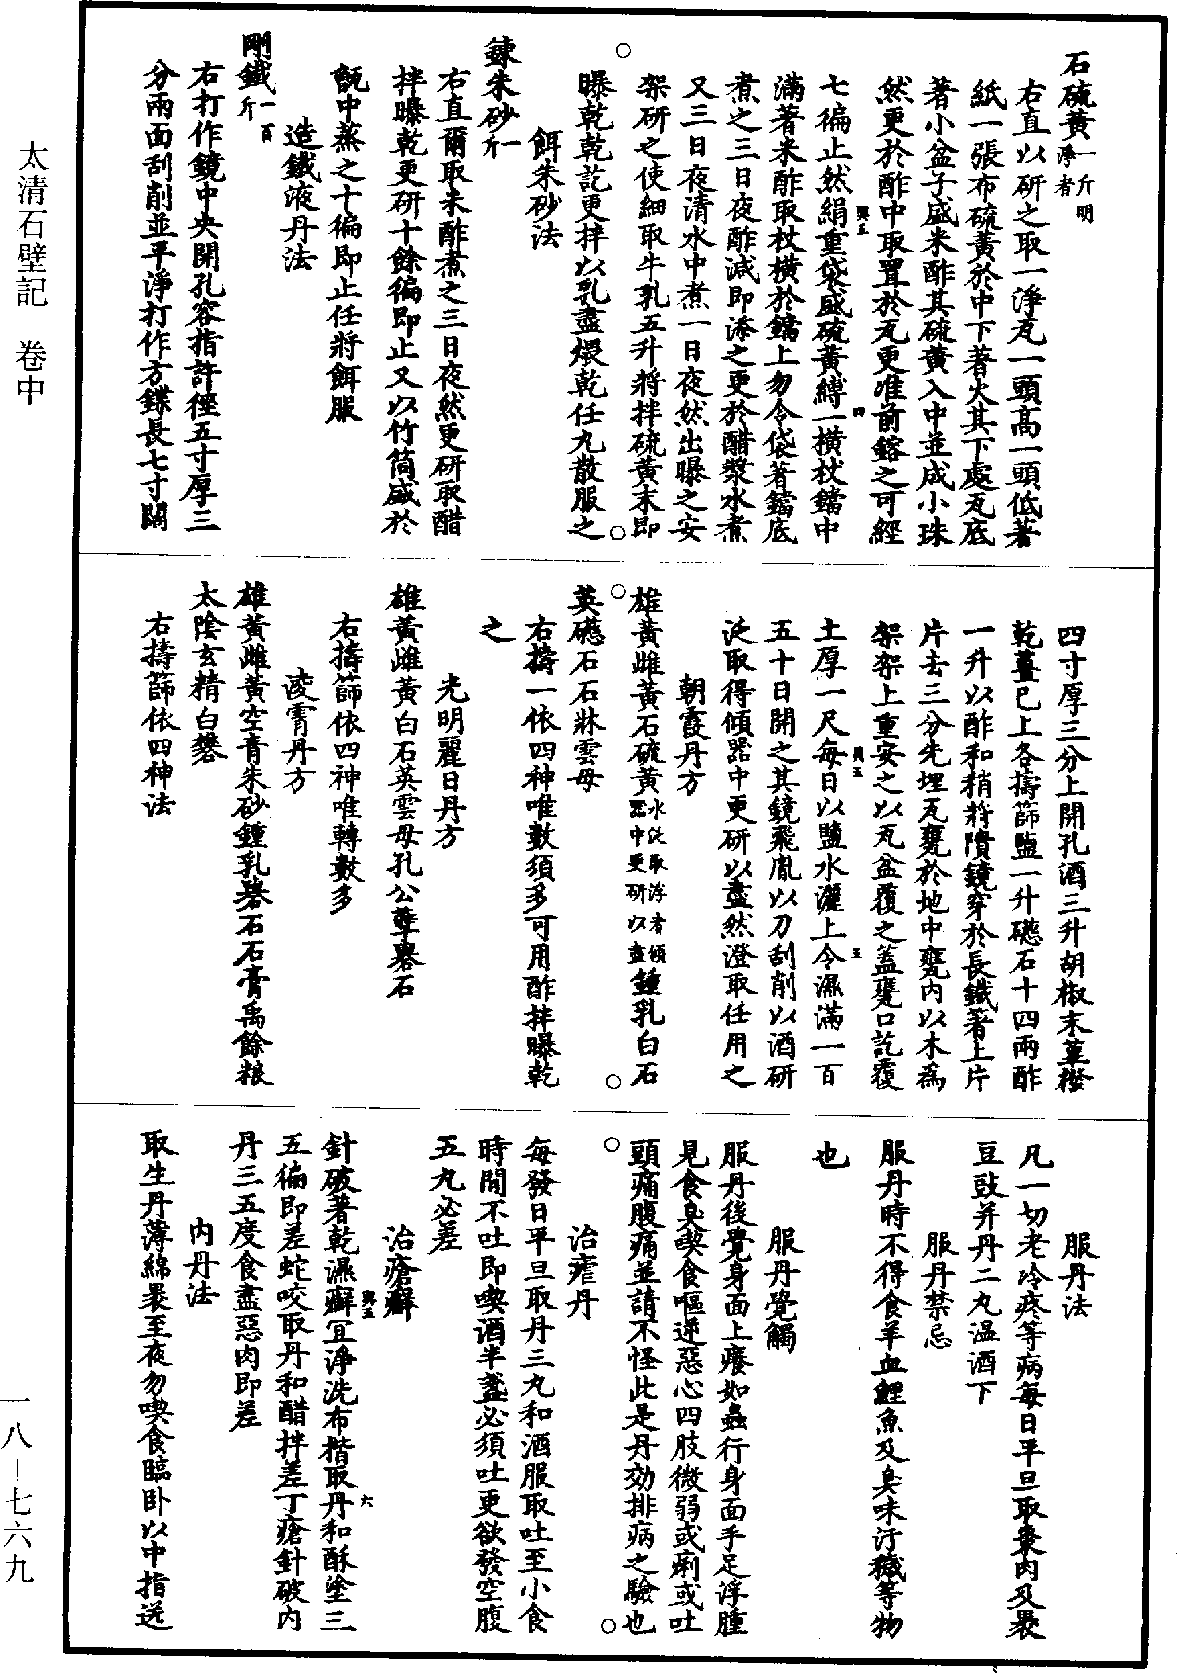 石硫黃一斤明淨者
右直以研之取一淨瓦一頭高一頭低著
紙一張布硫黃於中下著火其下處瓦底
著小盆子盛米酢其硫黃入中並成小珠
然更於酢中取置於瓦更准前鎔之可經
七徧止然絹重袋盛硫黃縛一橫杖鐺中
滿著米酢取杖橫於鐺上勿令袋著鐺底
煮之三日夜酢減即添之更於醋漿水煮
又三日夜清水中煮一日夜然出曝之安
架研之使細取牛乳五升將拌硫黃末即
曝乾乾訖更拌以乳盡煨乾任九散服之
餌朱砂法
鍊朱砂一斤
右直爾取朱酢煮之三日夜然更研取醋
拌曝乾更研十餘徧即止又以竹筒盛於
甑中蒸之十徧即止任將餌服
造鐵液丹法
剛鐵一百斤
右打作鏡中央開孔容指許徑五寸厚三
分兩面刮削並平淨打作方鍱長七寸闊
四寸厚三分上開孔酒三升胡椒末蓽撥
乾薑已上各擣篩鹽一升礠石十四兩酢
一升以酢和稍將隤鏡穿於長鐵著上片
片去三分先埋瓦甕於地中甕內以木為
架架上重安之以瓦盆覆之蓋甕口訖覆
土厚一尺每日以鹽水灑上令濕滿一百
五十日開之其鏡飛胤以刀刮削以酒研
泛取得傾器中更研以盡然澄取任用之
朝霞丹方
雄黃雌黃石硫黃水泛取浮者傾器中更研以盡鍾乳白石
英礠石石牀雲母
右擣一依四神唯數須多可用酢拌曝乾
之
光明麗日丹方
雄黃雌黃白石英雲母孔公孽礜石
右擣篩依四神唯轉數多
凌霄丹方
雄黃雌黃空青朱砂鍾乳礜石石膏禹餘粮
太陰玄精白礬
右擣篩依四神法
服丹法
凡一切老冷疼等病每日平旦取棗肉及裹
豆豉并丹二九溫酒下
服丹禁忌
服丹時不得食羊血鯉魚及臭味汙穢等物
也
服丹覺觸
服丹後覺身面上癢如蟲行身面手足浮腫
見食臭喫食嘔逆惡心四肢微弱或痢或吐
頭痛腹痛並請不怪此是丹効排病之驗也
治瘧丹
每發日平旦取丹三九和酒服取吐至小食
時間不吐即喫酒半盞必須吐更欲發空腹
五九必差
治瘡癬
針破著乾濕癬冝淨洗布楷取丹和酥塗三
五徧即差蛇咬取丹和醋拌差丁瘡針破內
丹三五度食盡惡肉即差
內丹法
取生丹薄綿裹至夜勿喫食臨臥以中指送
太清石壁記　卷中
一八—七六九